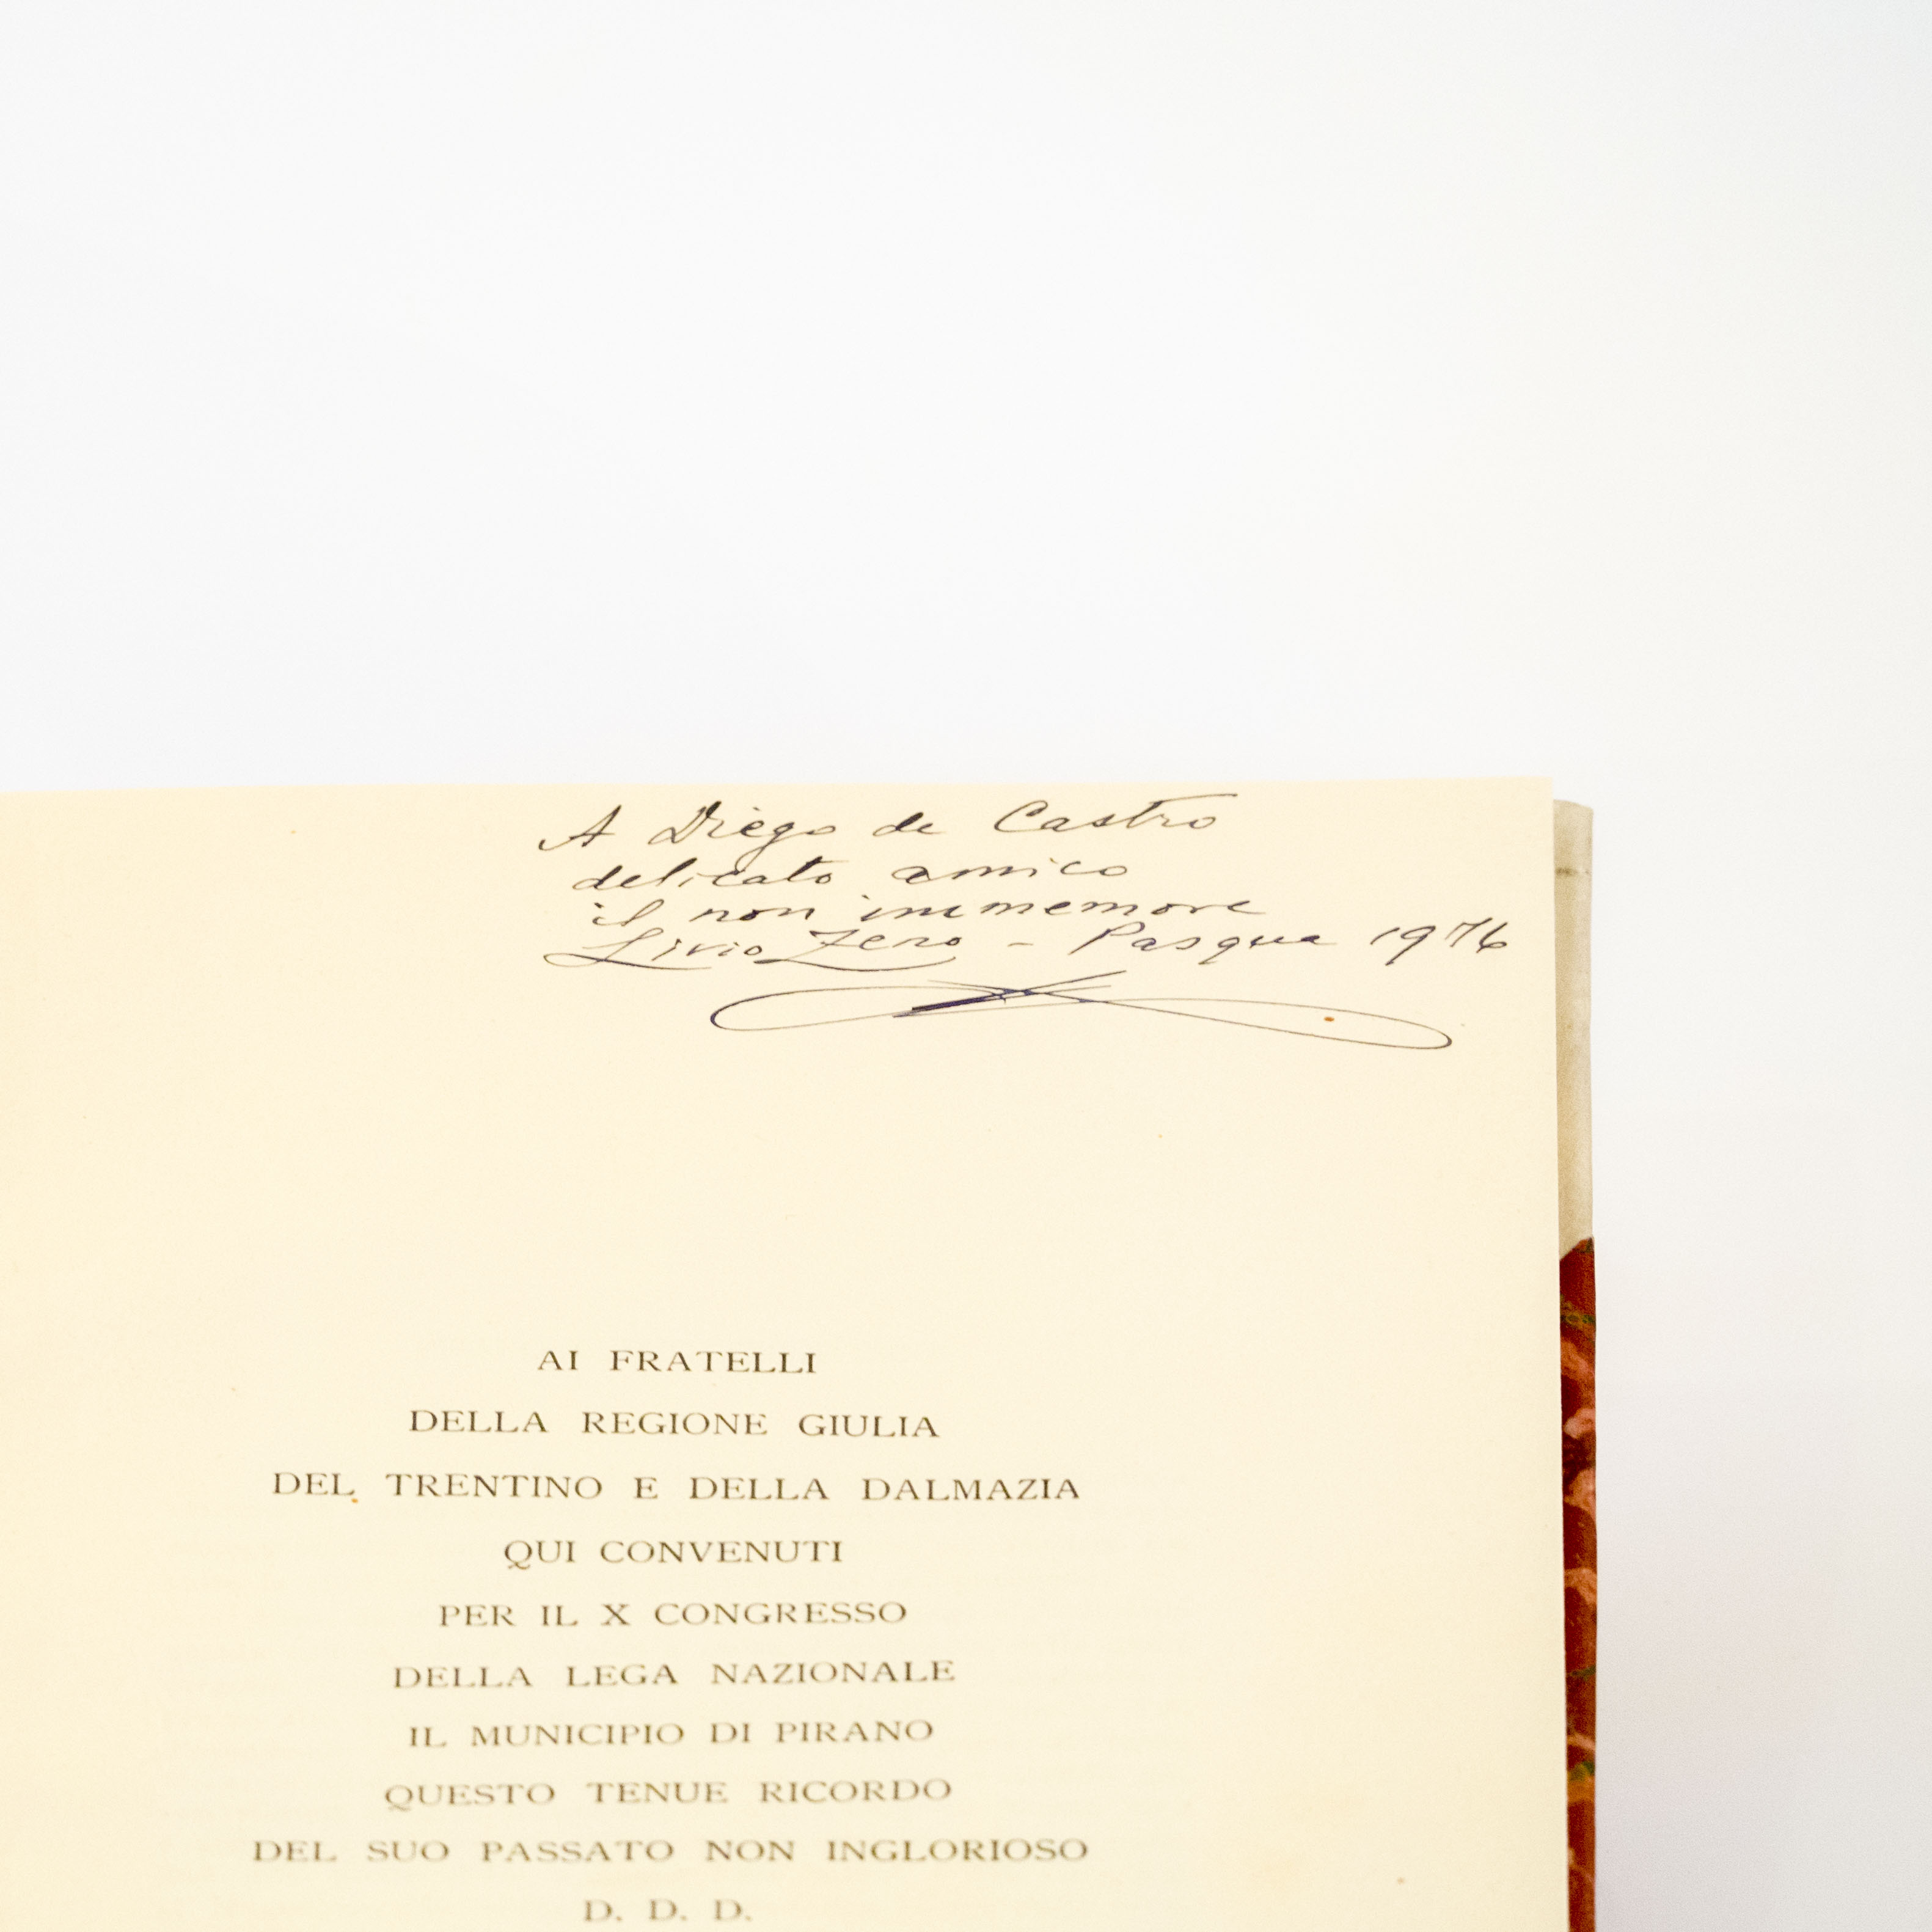 A Diego de Castro
delicato amico
il non immemore
Livio Zeno - Pasqua 1976
AI FRATELLI
DELLA REGIONE GIULIA
DEL TRENTINO E DELLA DALMAZIA
QUI CONVENUTI
PER IL X CONGRESSO
DELLA LEGA NAZIONALE
IL MUNICIPIO DI PIRANO
QUESTO TENUE RICORDO
DEL SUO PASSATO NON INGLORIOSO
D. D. D.